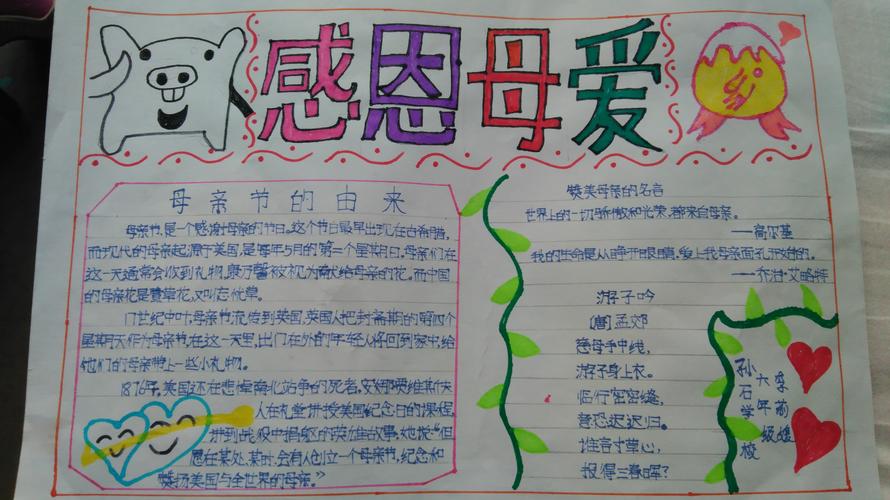 感恩母爱
母亲节的由来
母亲节,是一个感谢母亲的节日。这个节日最早出现在古希腊,
而现代的母亲起源于美国,是每年5月的第二个星期日。母亲们在
这一天通常会收到礼物,康乃馨被视为献给母亲的花,而中国
的母亲花是萱草花,又叫忘忧草。
17世纪中叶,母亲节流传到英国,英国人把封斋期的第四个
星期天作为母亲节。在这一天里,出门在外的年轻人将回到家中,给
他们的母亲带上一些小礼物。
1876年,美国还在悲悼南北战争的死者,安娜·贾维斯夫
人在礼堂讲授美国纪念日的课程,
讲到战役中捐躯的英雄故事,她说:“但
愿在某处、某时,会有人创立一个母亲节,纪念和
赞扬美国与全世界的母亲。”
赞美母亲的名言
世界上的一切骄傲和光荣,都来自母亲。
——高尔基
我的生命是从睁开眼睛,爱上我母亲面孔开始的。
——乔治·艾略特
游子吟
[唐]孟郊
慈母手中线,
游子身上衣。
临行密密缝,
意恐迟迟归。
谁言寸草心,
报得三春晖?
孙石学校
六年级